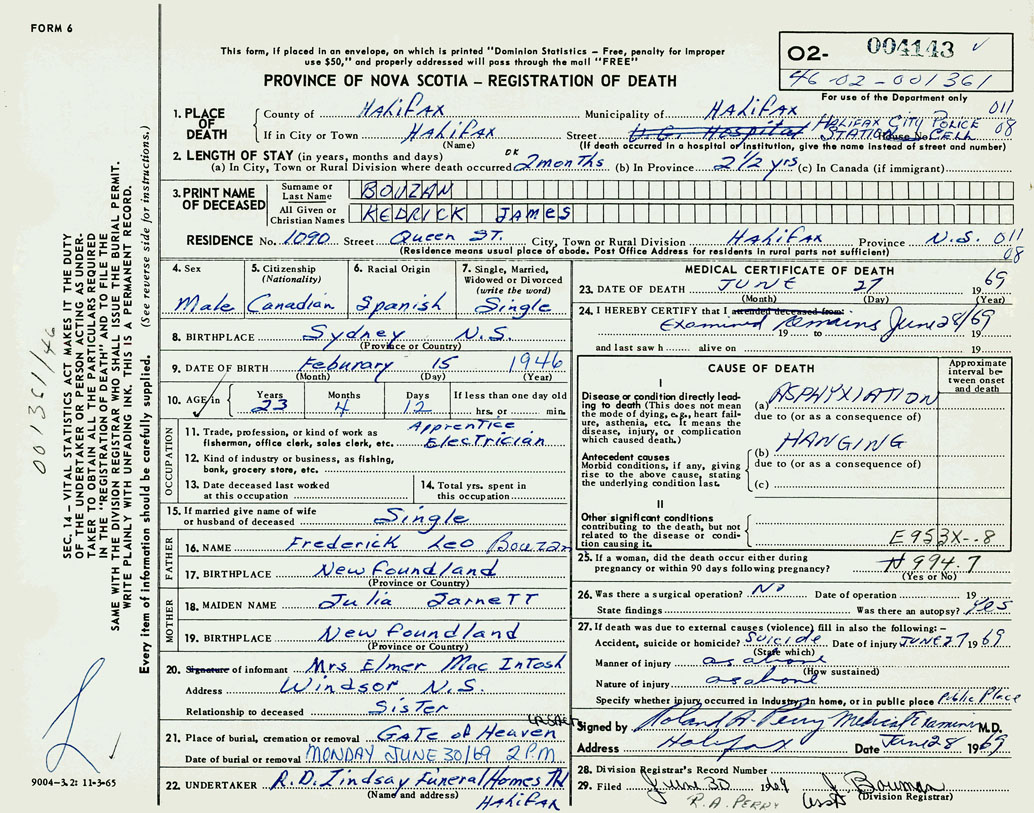 FORM 6
This form, if placed in an envelope, on which is printed "Dominion Statistics – Free, penalty for improper
use $50," and properly addressed will pass through the mail "FREE"
PROVINCE OF NOVA SCOTIA – REGISTRATION OF DEATH
O2- 004143
46-02-001361
For use of the Department only
1. PLACE OF DEATH
County of Halifax Municipality of Halifax 011
If in City or Town Halifax Street V.G. Hospital Halifax City Police Station Cell House No. 08
(Name) (If death occurred in a hospital or institution, give the name instead of street and number)
2. LENGTH OF STAY (in years, months and days)
(a) In City, Town or Rural Division where death occurred OK 2 months (b) In Province 2 1/2 yrs (c) In Canada (if immigrant)
3. PRINT NAME OF DECEASED
Surname or Last Name BOUZAN
All Given or Christian Names KEDRICK JAMES
RESIDENCE No. 1090 Street Queen St. City, Town or Rural Division Halifax Province N.S. 011
(Residence means usual place of abode. Post Office Address for residents in rural parts not sufficient) 08
4. Sex
Male
5. Citizenship
(Nationality)
Canadian
6. Racial Origin
Spanish
7. Single, Married,
Widowed or Divorced
(write the word)
Single
8. BIRTHPLACE Sydney N.S.
(Province or Country)
9. DATE OF BIRTH Feburary 15 1946
(Month) (Day) (Year)
10. AGE in Years 23 Months 4 Days 12 If less than one day old
hrs. or min.
OCCUPATION
11. Trade, profession, or kind of work as
fisherman, office clerk, sales clerk, etc. Apprentice Electrician
12. Kind of industry or business, as fishing,
bank, grocery store, etc.
13. Date deceased last worked
at this occupation
14. Total yrs. spent in
this occupation
15. If married give name of wife
or husband of deceased Single
FATHER
16. NAME Frederick Leo Bouzan
17. BIRTHPLACE Newfoundland
(Province or Country)
MOTHER
18. MAIDEN NAME Julia Jarnett
19. BIRTHPLACE Newfoundland
(Province or Country)
20. Signature of informant Mrs Elmer MacIntosh
Address Windsor N.S.
Relationship to deceased Sister
21. Place of burial, cremation or removal Gate of Heaven
Date of burial or removal MONDAY JUNE 30/69 2 P.M.
22. UNDERTAKER R.D. Lindsay Funeral Homes
(Name and address) Halifax
MEDICAL CERTIFICATE OF DEATH
23. DATE OF DEATH JUNE 27 1969
(Month) (Day) (Year)
24. I HEREBY CERTIFY that I attended deceased from:
Examined remains June 28/69
19 to 19
and last saw h alive on 19
CAUSE OF DEATH
Approximate
interval be-
tween onset
and death
I
Disease or condition directly lead-
ing to death (This does not mean
the mode of dying, e.g., heart fail-
ure, asthenia, etc. It means the
disease, injury, or complication
which caused death.)
(a) ASPHYXIATION
due to (or as a consequence of)
Antecedent causes
Morbid conditions, if any, giving
rise to the above cause, stating
the underlying condition last.
(b) HANGING
due to (or as a consequence of)
(c)
II
Other significant conditions
contributing to the death, but not
related to the disease or condi-
tion causing it.
E953X-.8
25. If a woman, did the death occur either during
pregnancy or within 90 days following pregnancy? N994.7
(Yes or No)
26. Was there a surgical operation? No Date of operation 19
State findings Was there an autopsy? Yes
27. If death was due to external causes (violence) fill in also the following:–
Accident, suicide or homicide? Suicide Date of injury JUNE 27 1969
(State which)
Manner of injury as above
(How sustained)
Nature of injury as above
Specify whether injury occurred in industry, in home, or in public place Public Place
Signed by Roland A. Perry Medical Examiner M.D.
Address Halifax Date June 28 1969
28. Division Registrar's Record Number
29. Filed June 30 1969 J. Bowman
(Division Registrar)
R.A. PERRY
SEC. 14 – VITAL STATISTICS ACT MAKES IT THE DUTY
OF THE UNDERTAKER OR PERSON ACTING AS UNDER-
TAKER TO OBTAIN ALL THE PARTICULARS REQUIRED
IN THE "REGISTRATION OF DEATH" AND TO FILE THE
SAME WITH THE DIVISION REGISTRAR WHO SHALL ISSUE THE BURIAL PERMIT.
WRITE PLAINLY WITH UNFADING INK. THIS IS A PERMANENT RECORD.
Every item of information should be carefully supplied. (See reverse side for instructions.)
001361/46
9004-3.2: 11-3-65